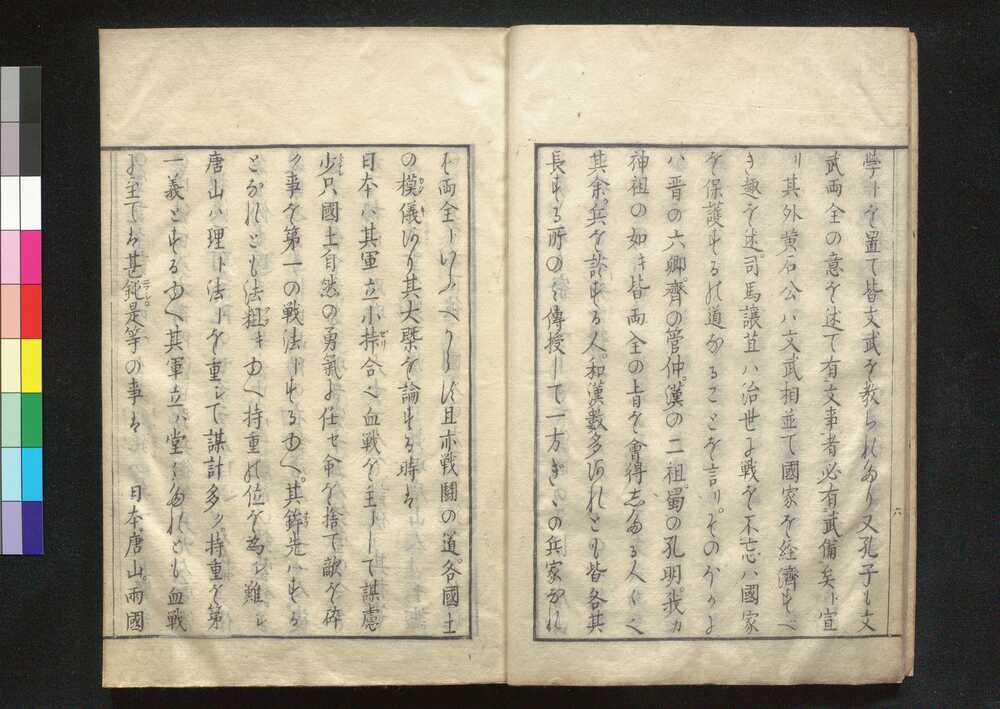 學ーを置て皆文武を教られたり又孔子も文
武両全の意を述て有文事者必有武備矣ト宣
リ其外黄石公ハ文武相並て國家を経濟すべ
き趣を述司馬讓苴ハ治世に戦を不忘ハ國家
を保護するの道なることを言リそのほかに
ハ晋の六卿齊の管仲漢の二祖蜀の孔明我カ
神祖の如キ皆両全の旨を會得志たる人々也
其余兵を談する人和漢數多あれとも皆各其
長する所のミ傳授して一方ぎゝの兵家なれ
は両全トハいふべからず且亦戦鬪の道各國土
の模儀あり其大槩を論する時は
日本ハ其軍立小挊合ヘ血戦を主として謀慮
少只國土自然の勇氣に任せ命を捨て敵を碎
ク事を第一の戦法トするゆへ其鋒先ハするど
となれとも法粗キゆへ持重の位を為シ難シ
唐山ハ理ト法トを重シて謀計多ク持重を第
一義とするゆへ其軍立ハ堂々たれとも血戦
に至ては甚鈍是等の事は 日本唐山両國
六